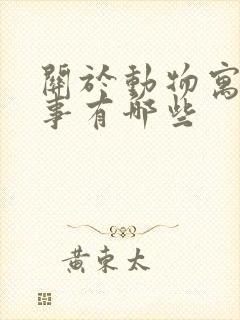 關於動物寓
事有哪些
黃東太